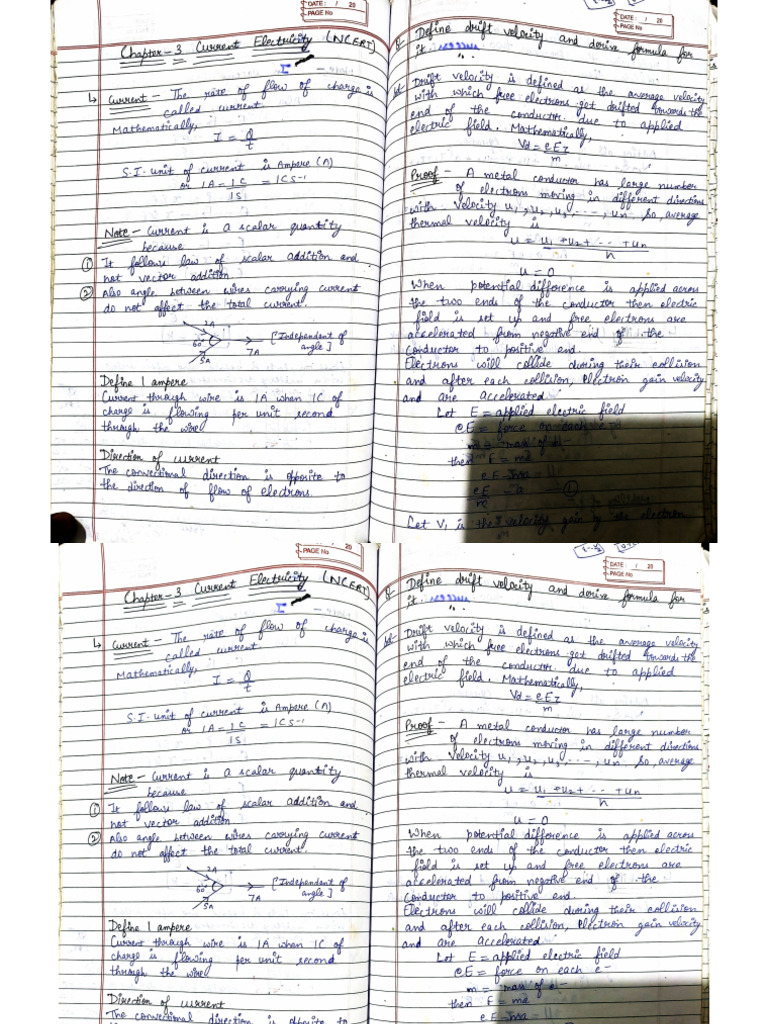 DATE: / 20
PAGE No
Chapter-3 Current Electricity (NCERT)
I
↳ Current - The rate of flow of charge is
called current.
Mathematically,
I = Q
t
S.I. unit of current is Ampere (A)
or 1A = 1C = 1Cs-1
1S
Note - Current is a scalar quantity
because
① It follows law of scalar addition and
not vector addition.
② Also angle between wires carrying current
do not affect the total current.
2A
60° → [Independent of
5A 7A angle]
Define 1 ampere
Current through wire is 1A when 1C of
charge is flowing per unit second
through the wire
Direction of current
The conventional direction is opposite to
the direction of flow of electrons.
DATE: / 20
PAGE No
Q Define drift velocity and derive formula for
it.
Sol Drift velocity is defined as the average velocity
with which free electrons get drifted towards the
end of the conductor due to applied
electric field. Mathematically,
Vd = eEτ
m
Proof - A metal conductor has large number
of electrons moving in different directions
with velocity u1, u2, u3, ...., un. So, average
thermal velocity is
u = u1 + u2 + ... + un
n
u = 0
When potential difference is applied across
the two ends of the conductor then electric
field is set up and free electrons are
accelerated from negative end of the
conductor to positive end.
Electrons will collide during their collision
and after each collision, electron gain velocity
and are accelerated
Let E = applied electric field
eE = force on each e-
m = mass of e-
then F = ma
eE = ma
eE = a — ①
m
Let V1 is the velocity gain by the electron
PAGE No
20
Chapter-3 Current Electricity (NCERT)
I
↳ Current - The rate of flow of charge is
called current
Mathematically,
I = Q
t
S.I. unit of current is Ampere (A)
or 1A = 1C = 1Cs-1
1S
Note - Current is a scalar quantity
because
① It follows law of scalar addition and
not vector addition
② Also angle between wires carrying current
do not affect the total current.
2A
60° → [Independent of
5A 7A angle]
Define 1 ampere
Current through wire is 1A when 1C of
charge is flowing per unit second
through the wire
Direction of current
The conventional direction is opposite to
DATE: / 20
PAGE No
Q Define drift velocity and derive formula for
it.
Sol Drift velocity is defined as the average velocity
with which free electrons get drifted towards the
end of the conductor due to applied
electric field. Mathematically,
Vd = eEτ
m
Proof - A metal conductor has large number
of electrons moving in different directions
with velocity u1, u2, u3, ...., un. So, average
thermal velocity is
u = u1 + u2 + ... + un
n
u = 0
When potential difference is applied across
the two ends of the conductor then electric
field is set up and free electrons are
accelerated from negative end of the
conductor to positive end.
Electrons will collide during their collision
and after each collision, electron gain velocity
and are accelerated
Let E = applied electric field
eE = force on each e-
m = mass of e-
then F = ma
eE = ma